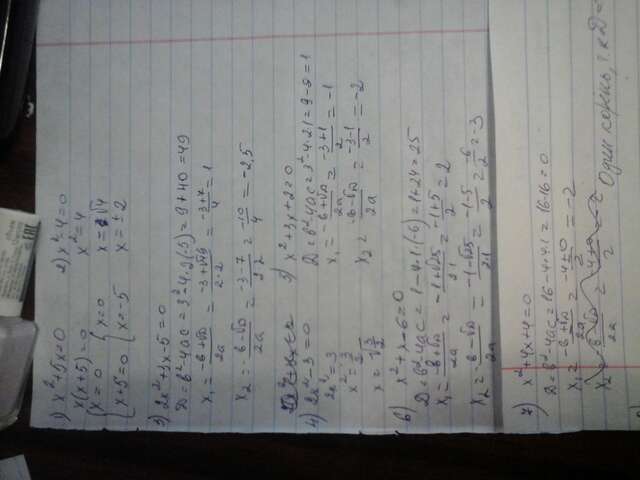 1) x²+5x=0
x(x+5)=0
{x=0 {x=0
{x-5=0 {x=-5
2) x²-4=0
x²=4
x=√4
x=±2
3) 2x²+3x-5=0
D=b²-4ac=3²-4·2(-5)=9+40=49
x₁=(-b+√D)/2a=(-3+√49)/2·2=(-3+7)/4=1
x₂=(-b-√D)/2a=(-3-7)/2·2=-10/4=-2,5
4) 2x²-3=0
2x²=3
x²=3/2
x=√3/2
5) x²+3x+2=0
D=b²-4ac=3²-4·2·1=9-8=1
x₁=(-b+√D)/2a=(-3+1)/2=-1
x₂=(-b-√D)/2a=(-3-1)/2=-2
6) x²+x-6=0
D=b²-4ac=1-4·1·(-6)=1+24=25
x₁=(-b+√D)/2a=(-1+√25)/2·1=(-1+5)/2=2
x₂=(-b-√D)/2a=(-1-√25)/2·1=(-1-5)/2=-6/2=-3
7) x²+4x+4=0
D=b²-4ac=16-4·4·1=16-16=0
x₁=(-b+√D)/2a=(-4+0)/2=-2
Один корень, т.к D=